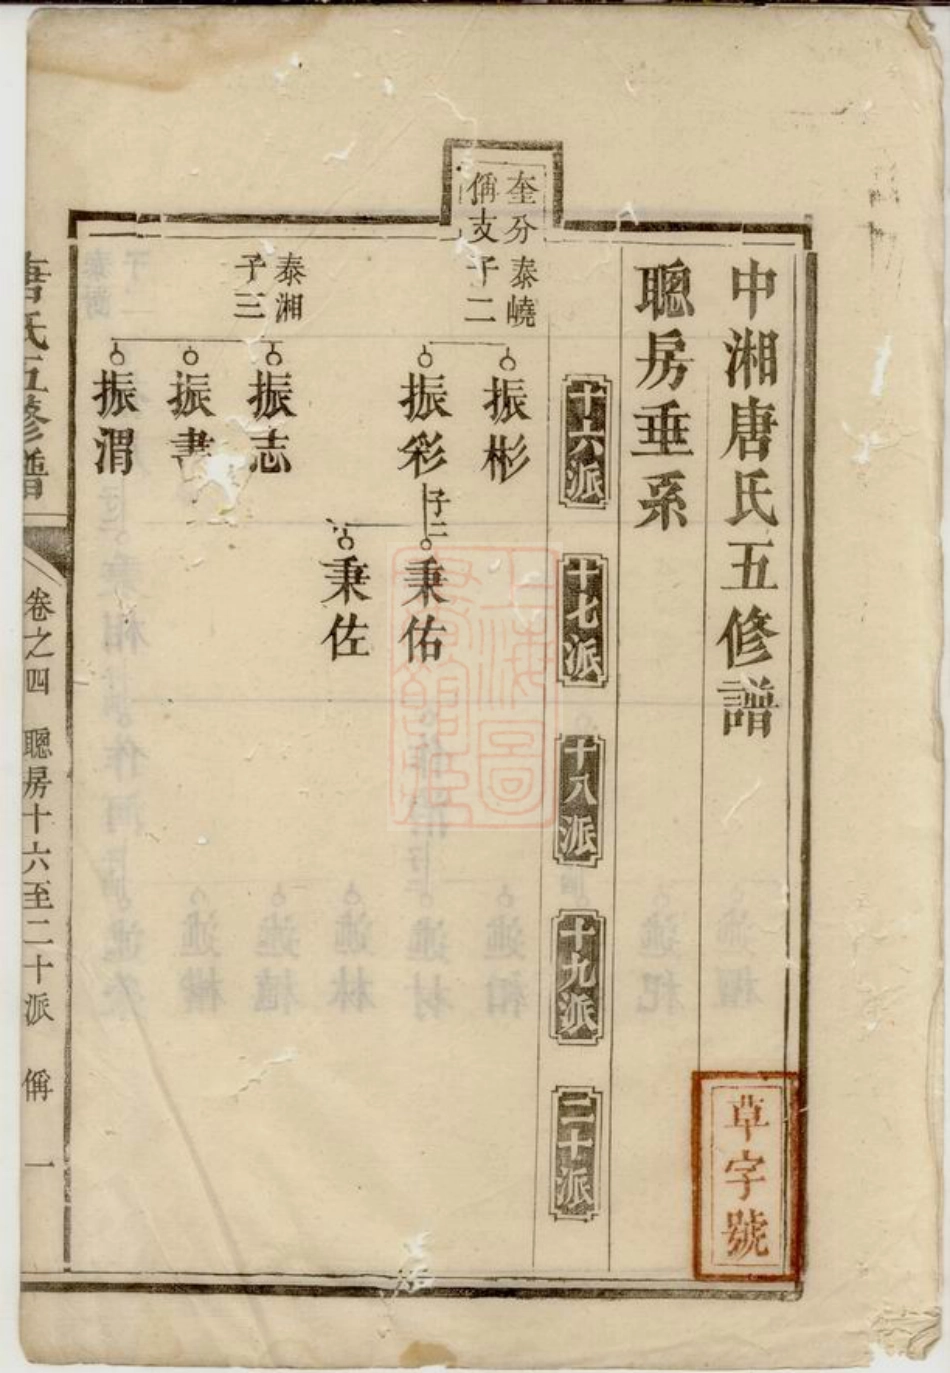 中湘唐氏五修譜
聰房垂系
草字號
十六派
十七派
十八派
十九派
二十派
奎分
偁支
泰嶢
子二
振彬
振彩
子二
秉佑
秉佐
泰湘
子三
振志
振書
振渭
唐氏五修譜
卷之四
聰房十六至二十派
偁
一